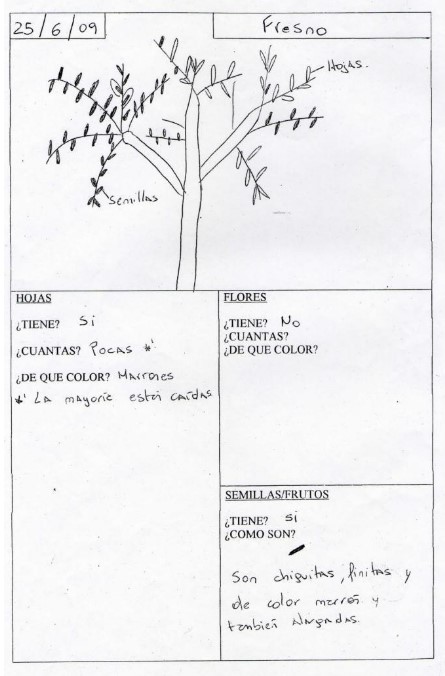 25/6/09
Fresno
Hojas.
Semillas
HOJAS
¿TIENE? Si
¿CUANTAS? Pocas *'
¿DE QUE COLOR? Marrones
*' La mayorie están caídas
FLORES
¿TIENE? No
¿CUANTAS?
¿DE QUE COLOR?
SEMILLAS/FRUTOS
¿TIENE? Si
¿COMO SON?
Son chiquitas, finitas y
de color marrón y
también alargadas.